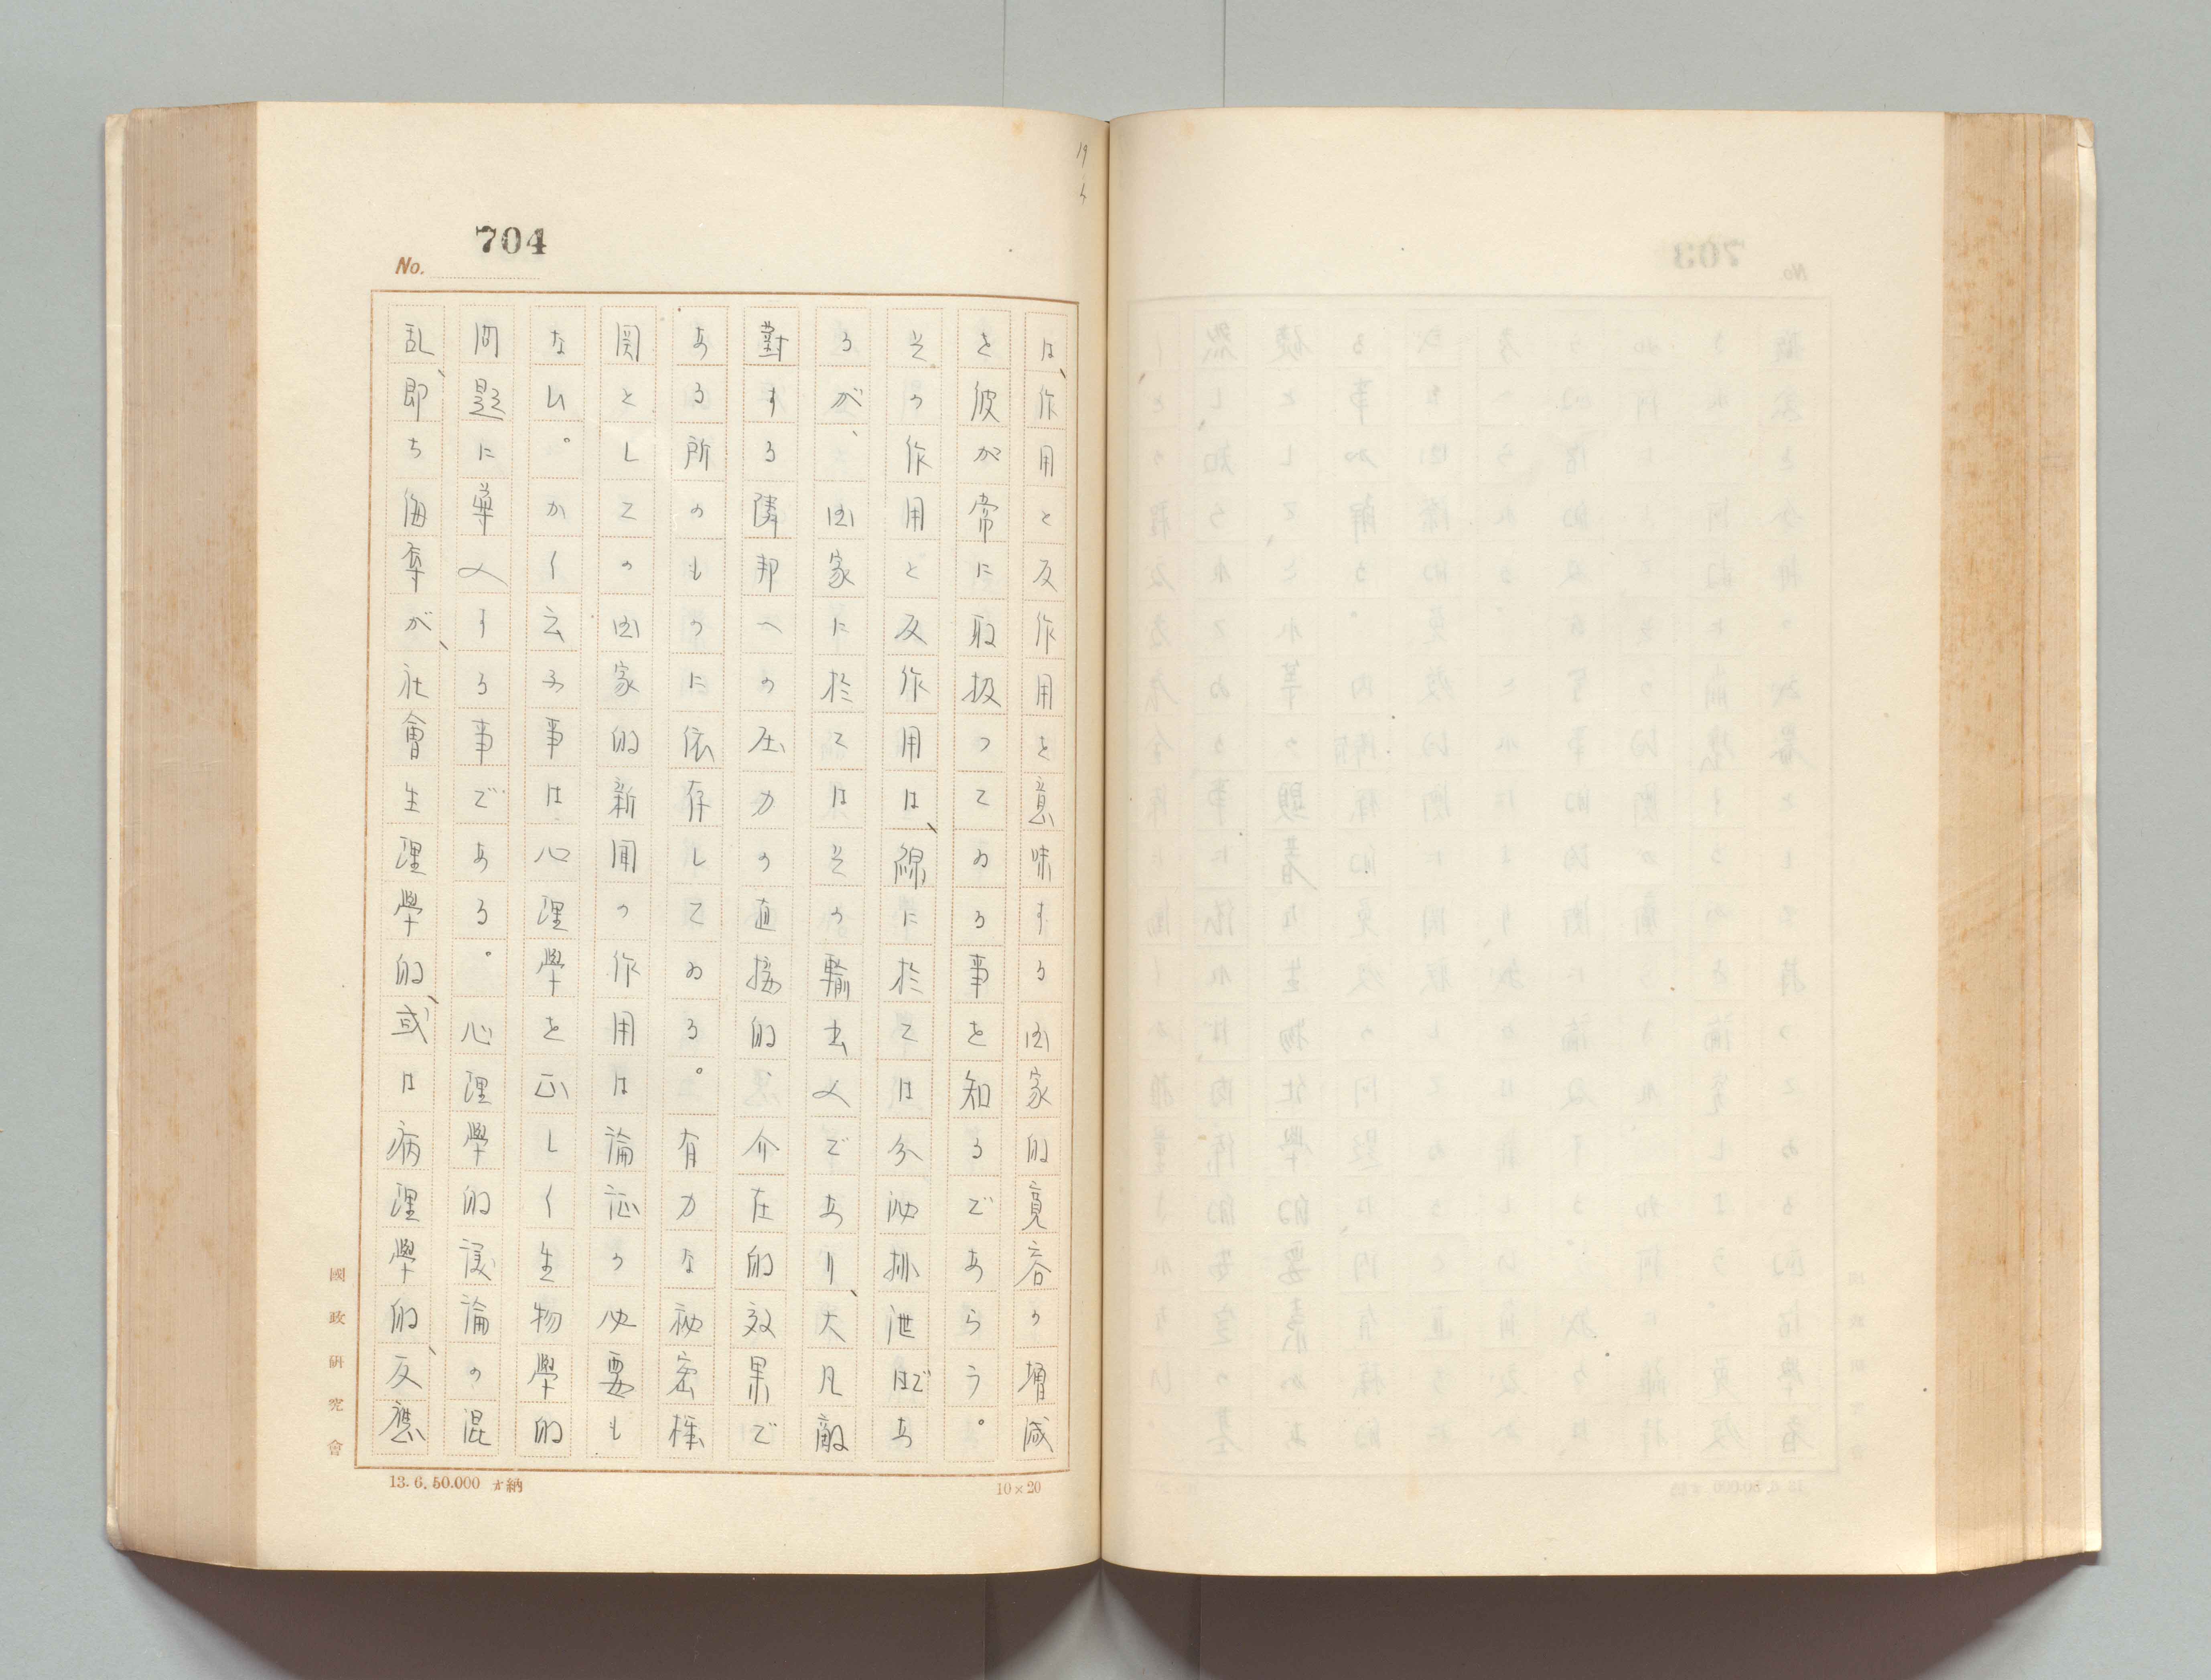 704
No.
は、作用と反作用を意味する国家的寛容の増減
を彼が常に取扱つてゐる事を知るであらう。
その作用と反作用は、線に於ては分泌排泄であ
るが、国家に於てはその輸出入であり、大凡敵
對する隣邦への圧力の直接的、介在的效果で
ある所のものに依存してゐる。有力な秘密機
関としての国家的新聞の作用は論证の必要も
ない。かく云ふ事は心理學を正しく生物學的
問題に導入する事である。心理學的諼論の混
乱、即ち侮辱が、社會生理學的、或は病理學的、反應
國政研究會
13.6.50.000 才納
10×20